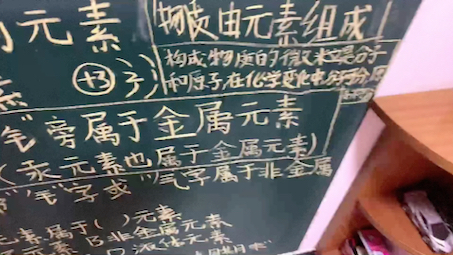 的元素
物质由元素组成
+3
构成物质的微粒是分子
和原子在化学变化中分子分
旁属于金属元素
(汞元素也属于金属元素)
字或"气"字属于非金属
元素属于( )元素
元素 B非金属元素
元素 D液体元素